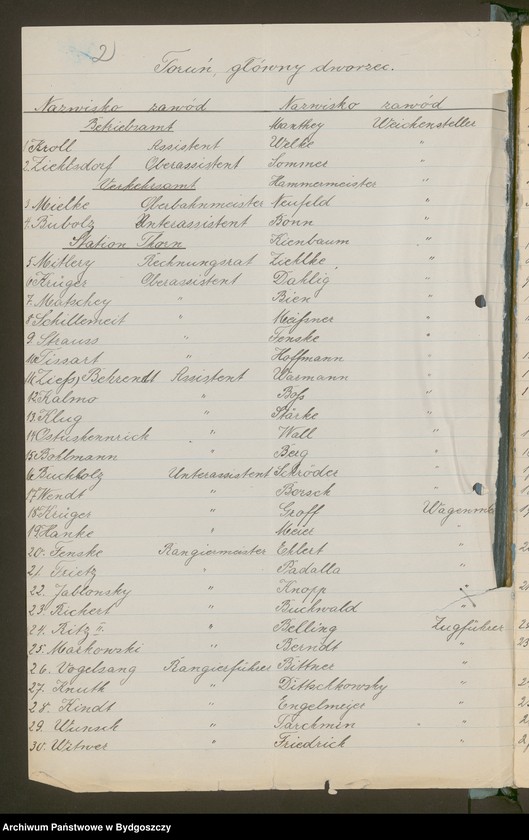 2)
Toruń, główny dworzec.
Nazwisko zawód Nazwisko zawód
Betriebsamt Manthey Weichensteller
1. Kroll Assistent Welke "
2. Ziehlsdorf Oberassistent Sommer "
Verkehrsamt Hammermeister "
3. Mielke Oberbahnmeister Neufeld "
4. Bubolz Unterassistent Bonn "
Station Thorn Kienbaum "
5. Mitlery Rechnungsrat Ziehlke "
6. Krüger Oberassistent Dahlig "
7. Matschey " Bien "
8. Schillemeit " Meißner "
9. Strauss " Fenske "
10. Tissart " Hoffmann "
11. Behrendt Assistent Warmann "
12. Kalmo " Boß "
13. Klug " Stärke "
14. " Wall "
15. Bohlmann " Berg "
16. Buchholz Unterassistent Schröder "
17. Wendt " Borsch "
18. Krüger " Groff
19. Hanke " Meier "
20. Fenske Rangiermeister Ehlert "
21. Trietz " Padalla "
22. Jablonsky " Knopp "
23. Richert " Buchwald
24. Ritz II. " Belling Zugführer
25. Markowski " Berndt "
26. Vogelsang Rangierführer Bittner "
27. Knuth " Dittschkowsky "
28. Kindt " Engelmejer "
29. Wunsch " Parchmin "
30. Witwer " Friedrich "
Archiwum Państwowe w Bydgoszczy